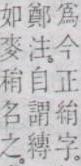 爲今正絹字
鄭注自謂縳
如麥䅌名之